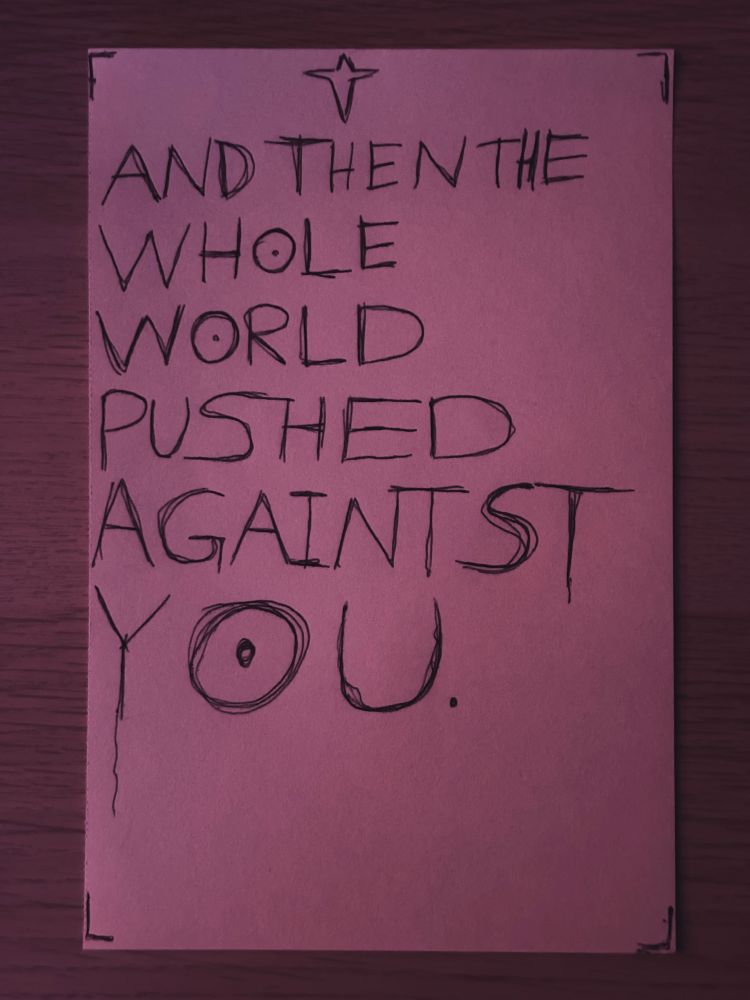 AND THEN THE
WHOLE
WORLD
PUSHED
AGAINTST
YOU.